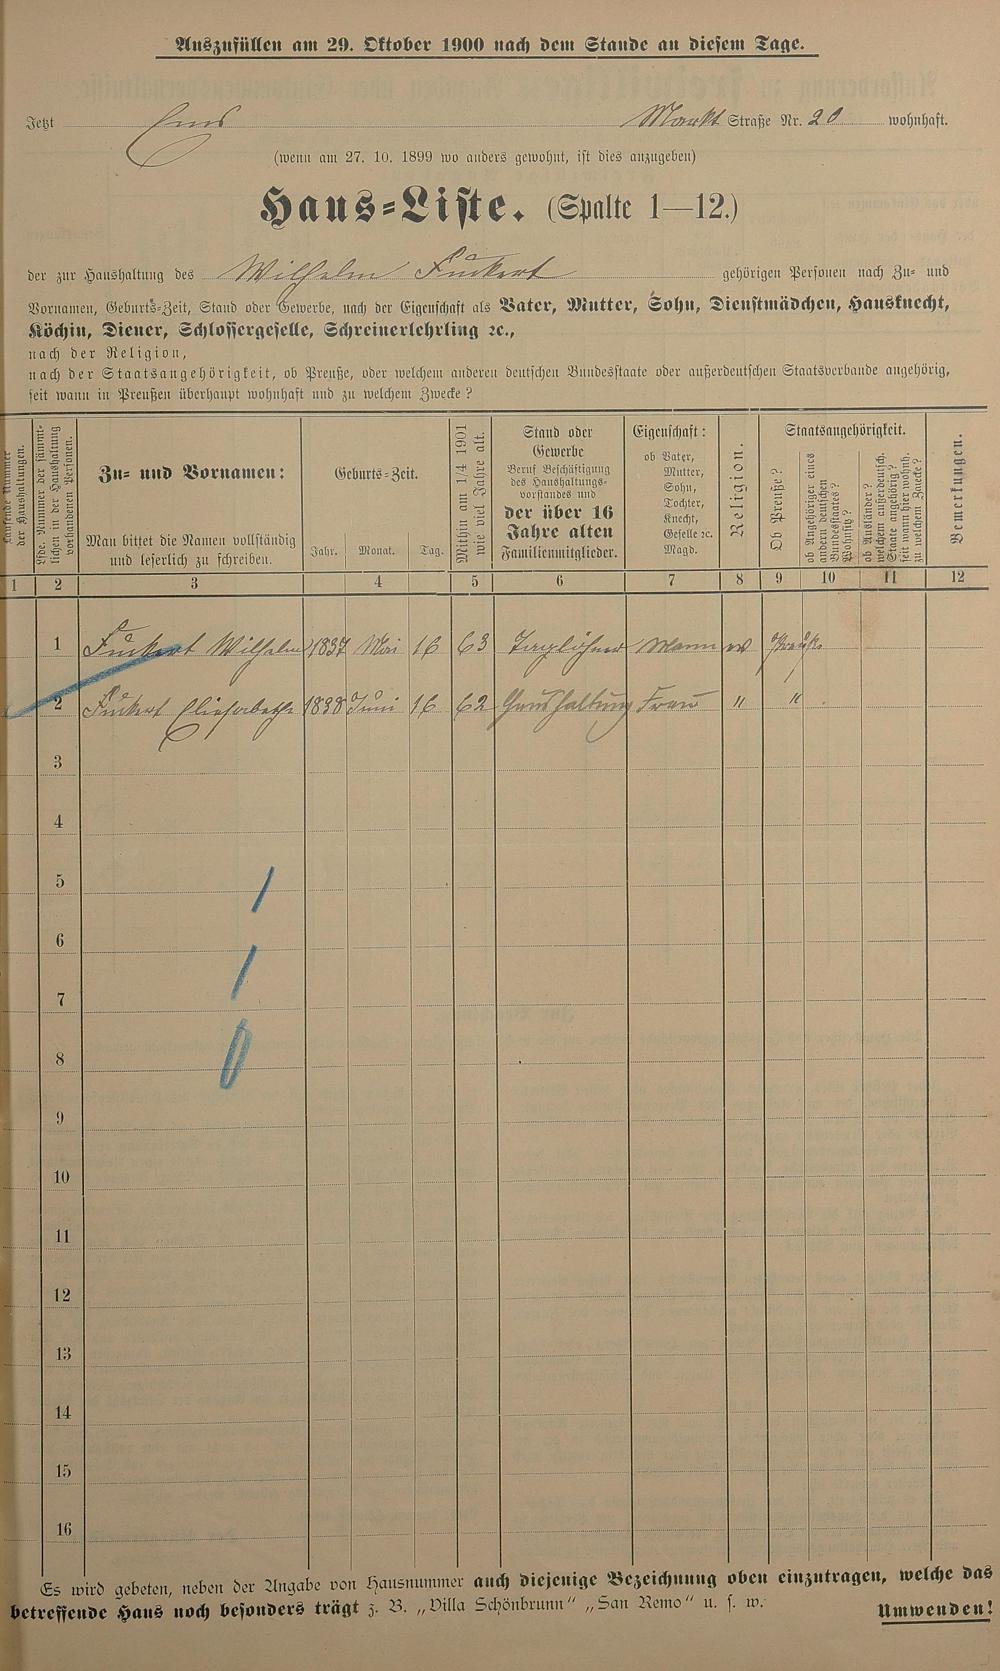 Auszufüllen am 29. Oktober 1900 nach dem Stande an diesem Tage.
Jetzt Ems Markt Straße Nr. 20 wohnhaft.
(wenn am 27. 10. 1899 wo anders gewohnt, ist dies anzugeben)
Haus-Liste. (Spalte 1—12.)
der zur Haushaltung des Wilhelm Fuckert gehörigen Personen nach Zu- und
Vornamen, Geburts-Zeit, Stand oder Gewerbe, nach der Eigenschaft als Vater, Mutter, Sohn, Dienstmädchen, Hausknecht,
Köchin, Diener, Schlossergeselle, Schreinerlehrling ꝛc.,
nach der Religion,
nach der Staatsangehörigkeit, ob Preuße, oder welchem anderen deutschen Bundesstaate oder außerdeutschen Staatsverbande angehörig,
seit wann in Preußen überhaupt wohnhaft und zu welchem Zwecke?
Laufende Nummer
der Haushaltungen.
Lfde. Nummer der sämmt-
lichen in der Haushaltung
vorhandenen Personen.
Zu- und Vornamen:
Man bittet die Namen vollständig
und leserlich zu schreiben.
Geburts-Zeit.
Jahr. Monat. Tag.
Mithin am 1/4 1901
wie viel Jahre alt.
Stand oder
Gewerbe
Beruf Beschäftigung
des Haushaltungs-
vorstandes und
der über 16
Jahre alten
Familienmitglieder.
Eigenschaft:
ob Vater,
Mutter,
Sohn,
Tochter,
Knecht,
Geselle ꝛc.
Magd.
Religion.
Staatsangehörigkeit.
Ob Preuße?
ob Angehöriger eines
andern deutschen
Bundesstaates?
Wohnsitz?
ob Ausländer?
welchem außerdeutsch.
Staate angehörig?
seit wann hier wohnh.
zu welchem Zwecke?
Bemerkungen.
1 2 3 4 5 6 7 8 9 10 11 12
1 Fuckert Wilhelm 1837 Mai 16 63 Taglöhner Mann ev Preuße
2 Fuckert Elisabethe 1838 Juni 16 62 Haushaltung Frau " "
3
4
5
6
7
8
9
10
11
12
13
14
15
16
1
1
0
Es wird gebeten, neben der Angabe von Hausnummer auch diejenige Bezeichnung oben einzutragen, welche das
betreffende Haus noch besonders trägt z. B. „Villa Schönbrunn" „San Remo" u. s. w.
Umwenden!